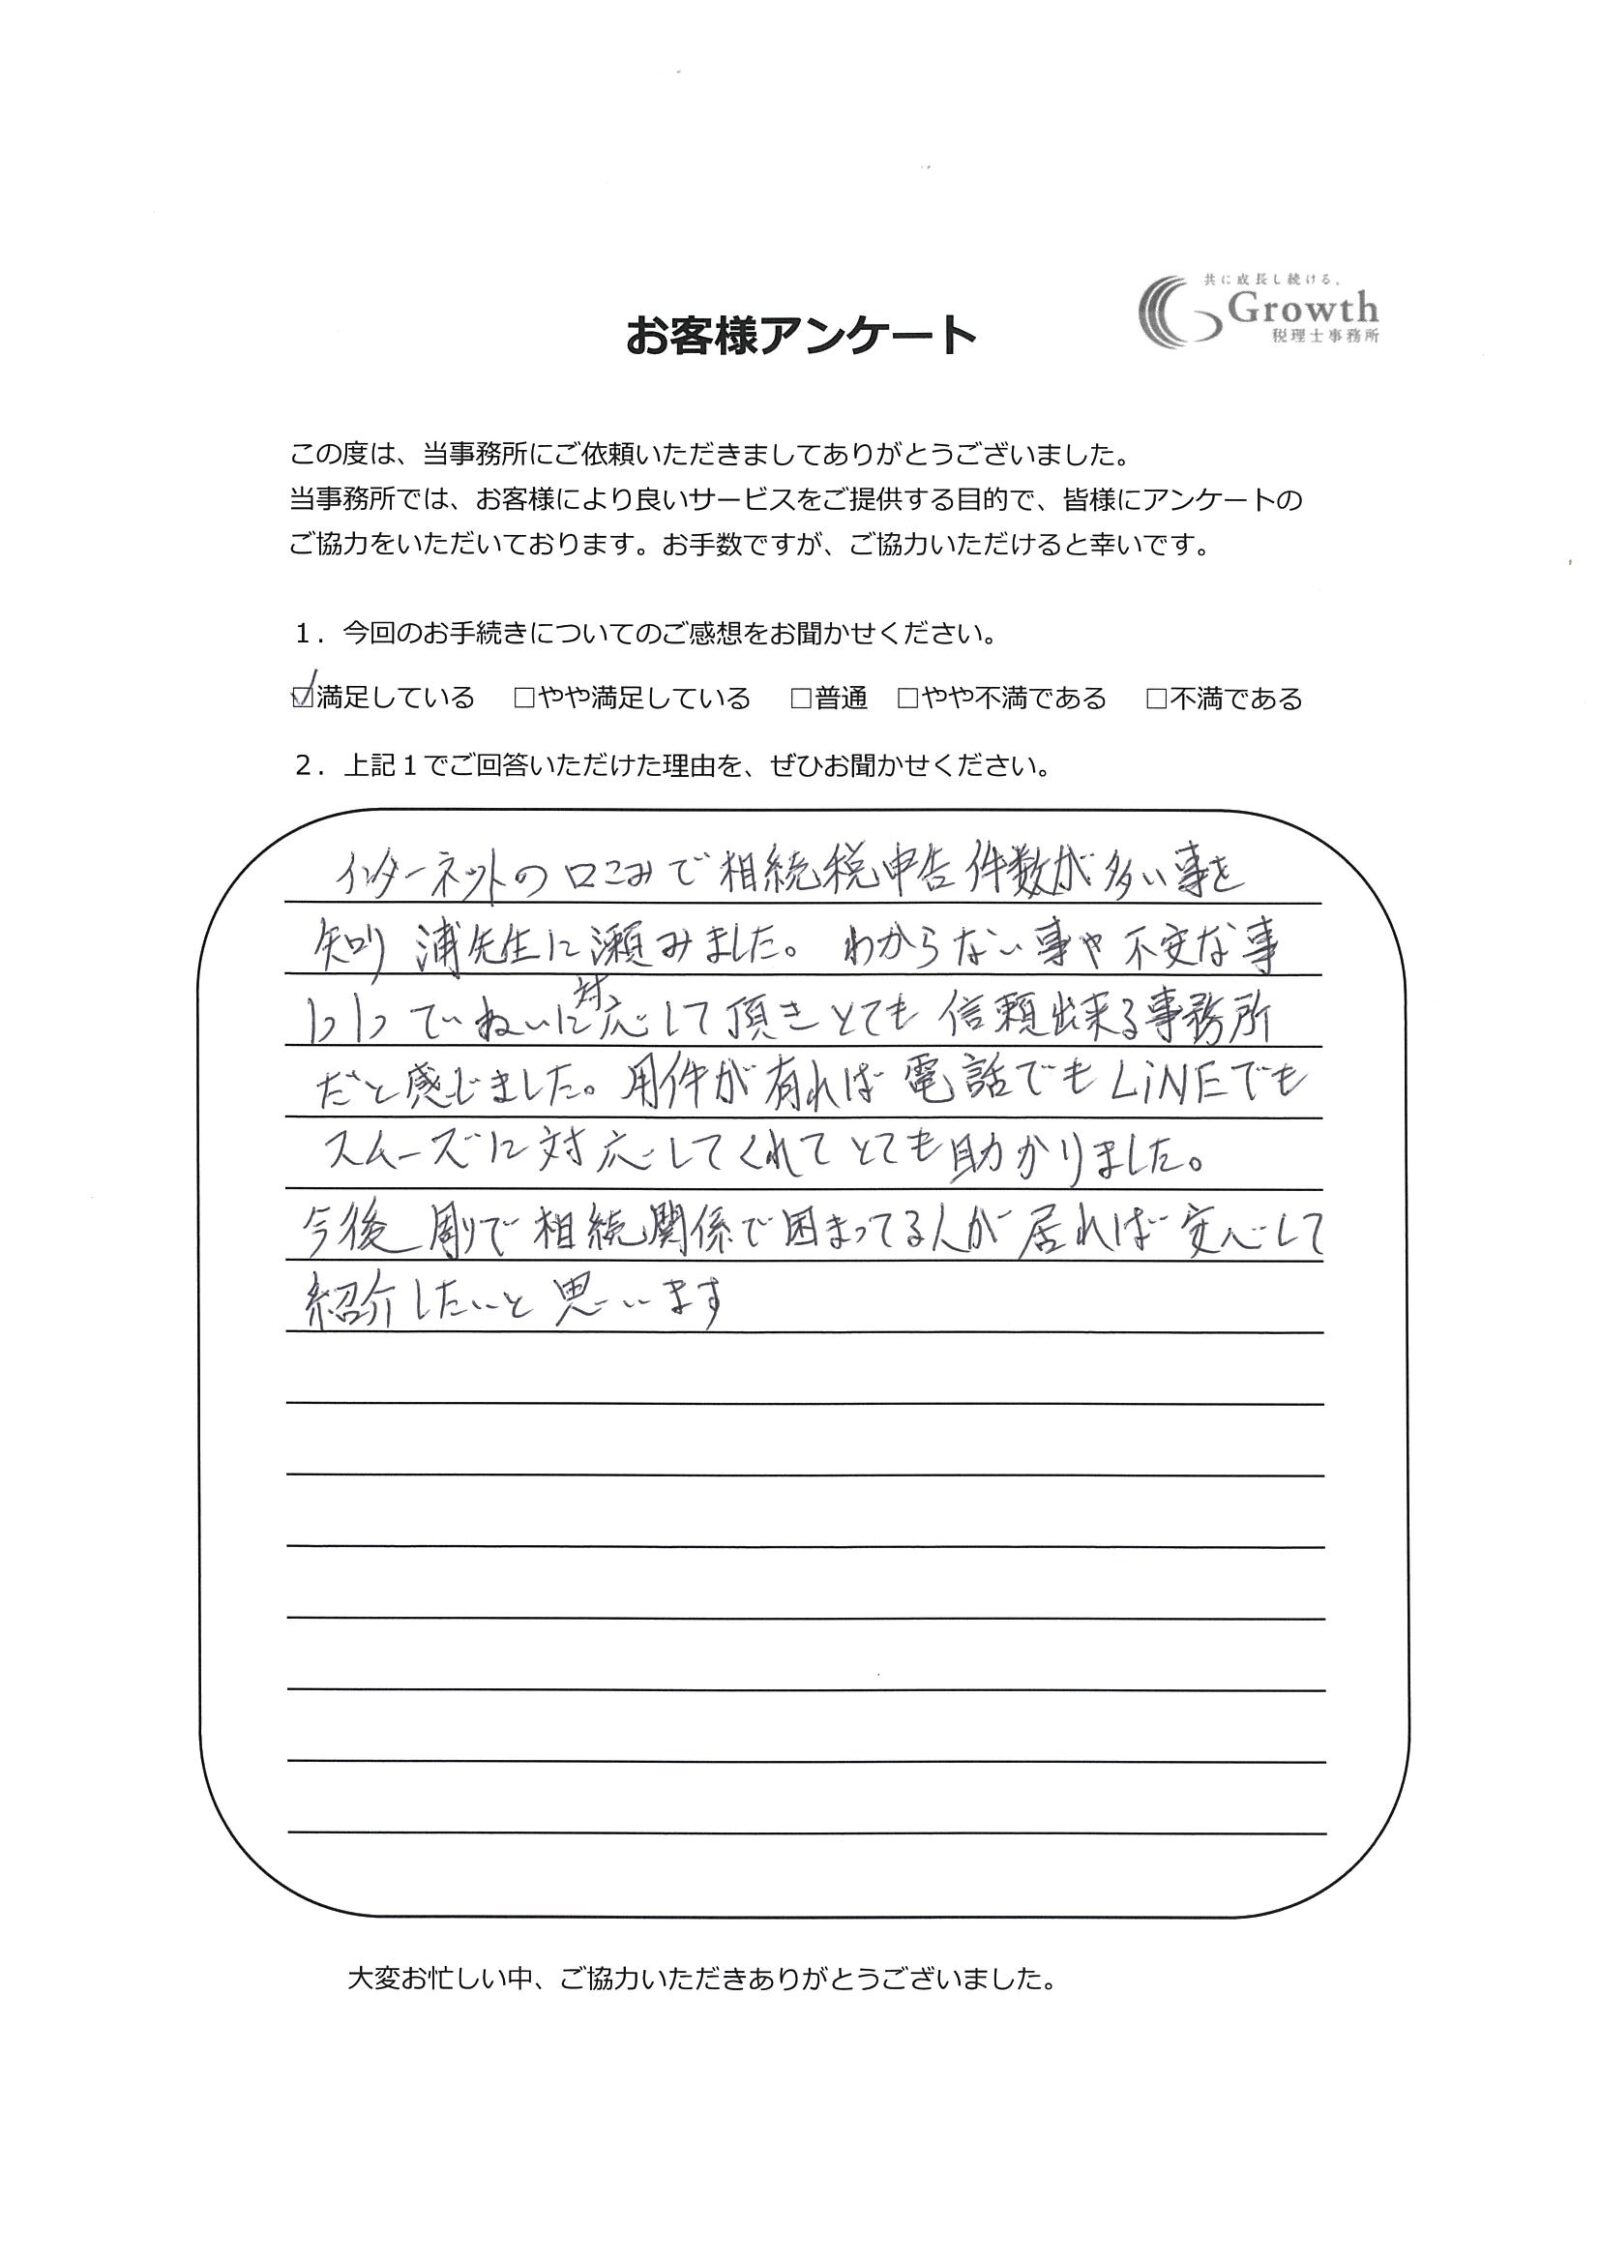 共に成長し続ける。
Growth
税理士事務所
お客様アンケート
この度は、当事務所にご依頼いただきましてありがとうございました。
当事務所では、お客様により良いサービスをご提供する目的で、皆様にアンケートの
ご協力をいただいております。お手数ですが、ご協力いただけると幸いです。
１．今回のお手続きについてのご感想をお聞かせください。
☑満足している　□やや満足している　□普通　□やや不満である　□不満である
２．上記１でご回答いただけた理由を、ぜひお聞かせください。
インターネットの口こみで相続税申告件数が多い事を
知り 浦先生に瀬みました。わからない事や不安な事
1つ1つていねいに対応して頂きとても信頼出来る事務所
だと感じました。用件が有れば電話でもLiNEでも
スムーズに対応してくれてとても助かりました。
今後 周りで相続関係で困まってる人が居れば安心して
紹介したいと思います
大変お忙しい中、ご協力いただきありがとうございました。